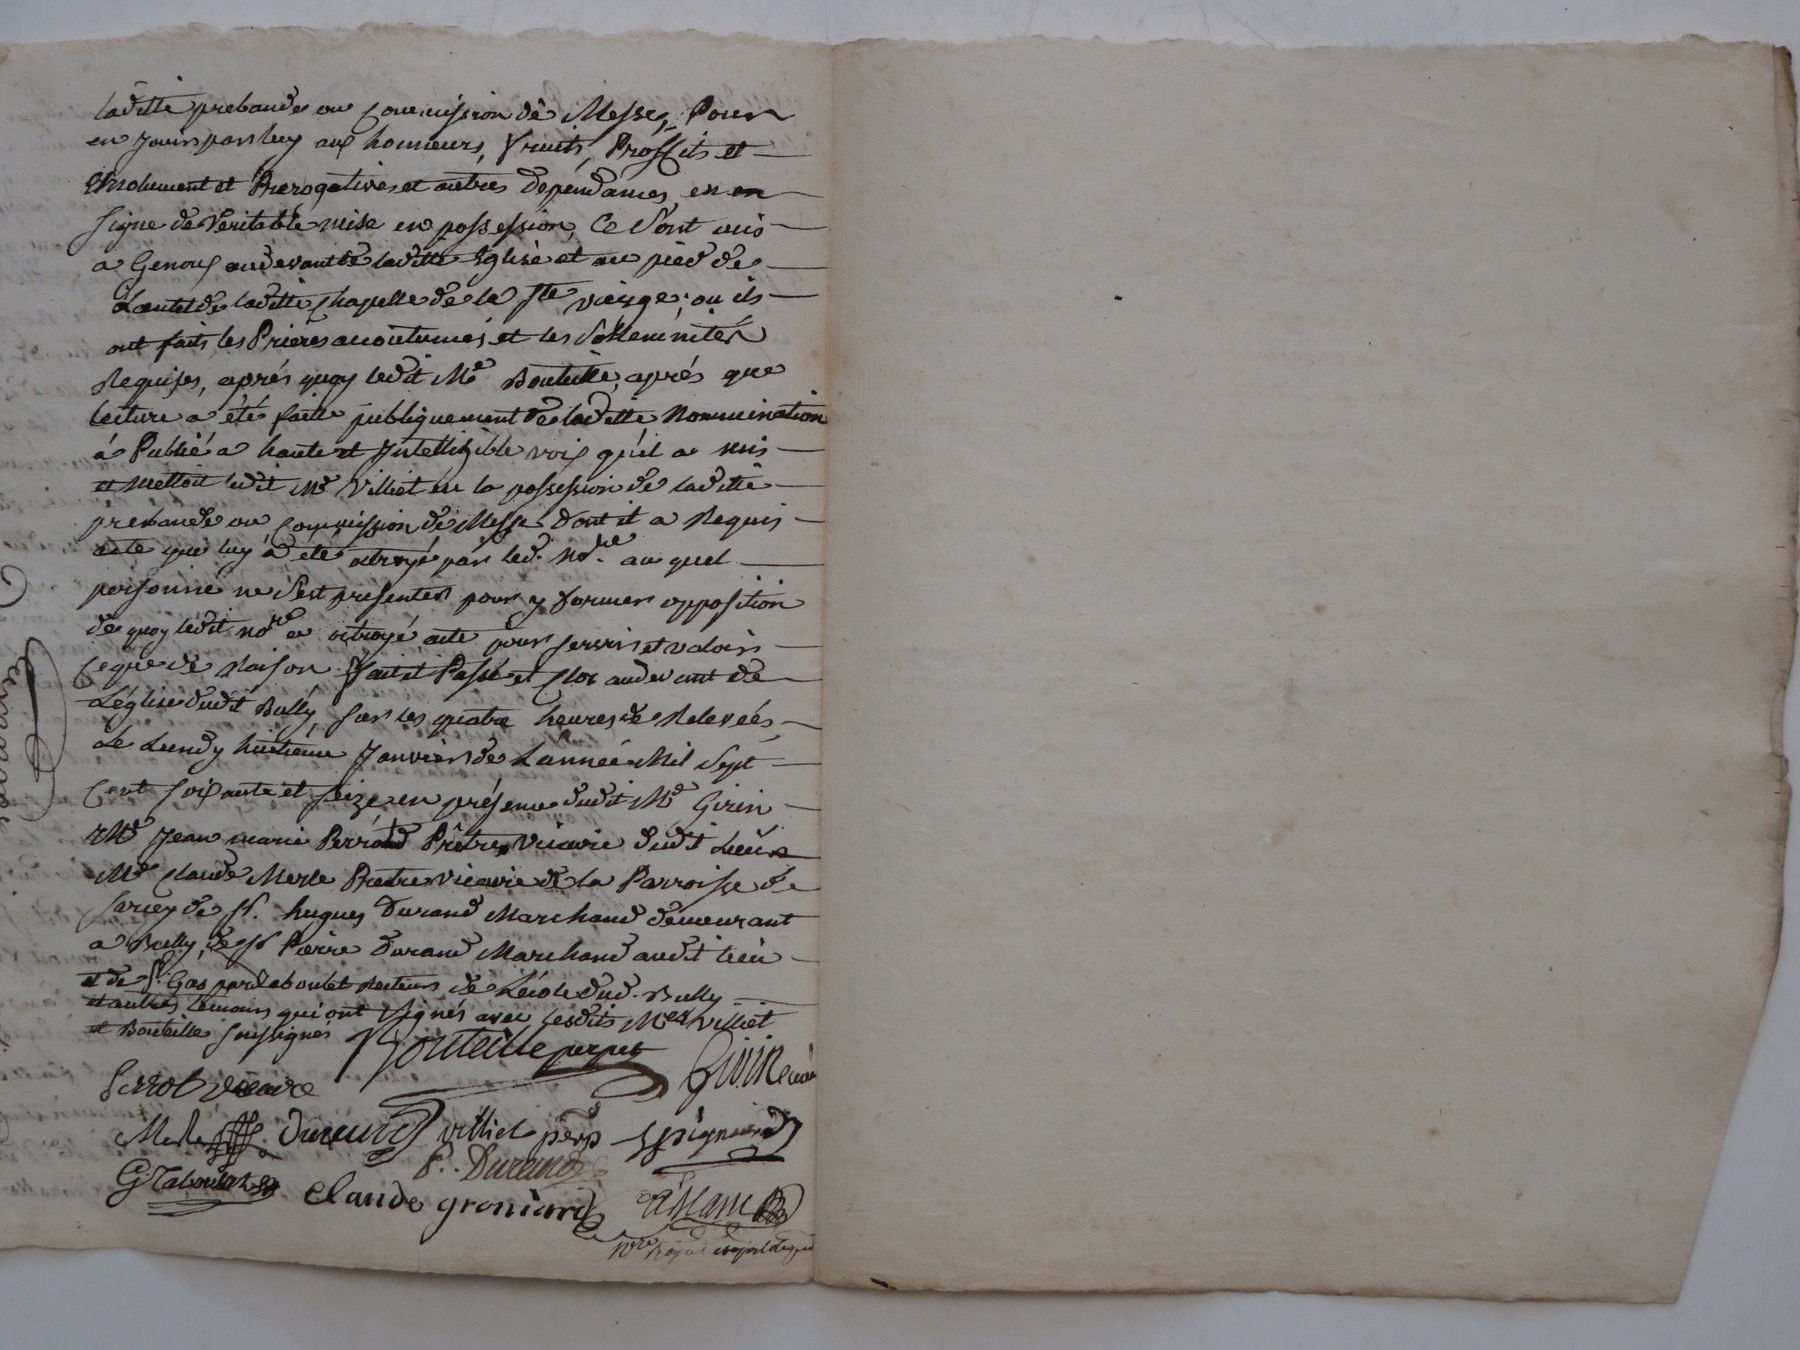 laditte prebande ou Commission de Messe, Pour
en Jouir par luy aux honneurs, fruits, Proffits et
Emolument et Prerogatives et autres dependances, et en
signe de Veritable mise en possession, Ce sont mis
a Genoux audevant de laditte Eglise et au pied de
L'autel de laditte Chapelle de la Ste vierge, ou ils
ont faits les Prieres accoutumés et les Sollemnités
Requises, aprés quoy ledit Me Bouteille, aprés que
lecture a été faitte publiquement de laditte Nommination
á Publié a haute et Intelligible voix qu'il a mis
et mettoit ledit Me Villiet en la possession de laditte
prebande ou Commission de Messe dont il a Requis
acte que luy a été octroyé par led. Nore au quel
personne ne s'est presenter pour y former opposition
de quoy ledit nore a octroyé acte pour servir et valoir
Ceque de Raison. fait et Passé et Clos audevant de
L'église dudit Bully, sur les quatre heures de Relevées,
Le Lundy huitieme Janvier de L'année Mil Sept
Cent soixante et seize en présence dudit Me Girin
Me Jean marie Perrot Prêtre Vicaire dudit Lieu
Me Claude Merle Pretre vicaire de la Parroisse de
Sarcey de sr. hugues Durand Marchand demeurant
a Bully, de sr Pierre Durand Marchand audit lieu
et de Sr. Gaspard Laboulet Recteur de L'école dud. Bully
et autres temoins qui ont signés avec lesdits Mes Villiet
et Bouteille soussignés
Bouteille Girin curé
Perrot vicaire
Merle Durand villiet
P. Durand
Claude groniard
Nre Royal